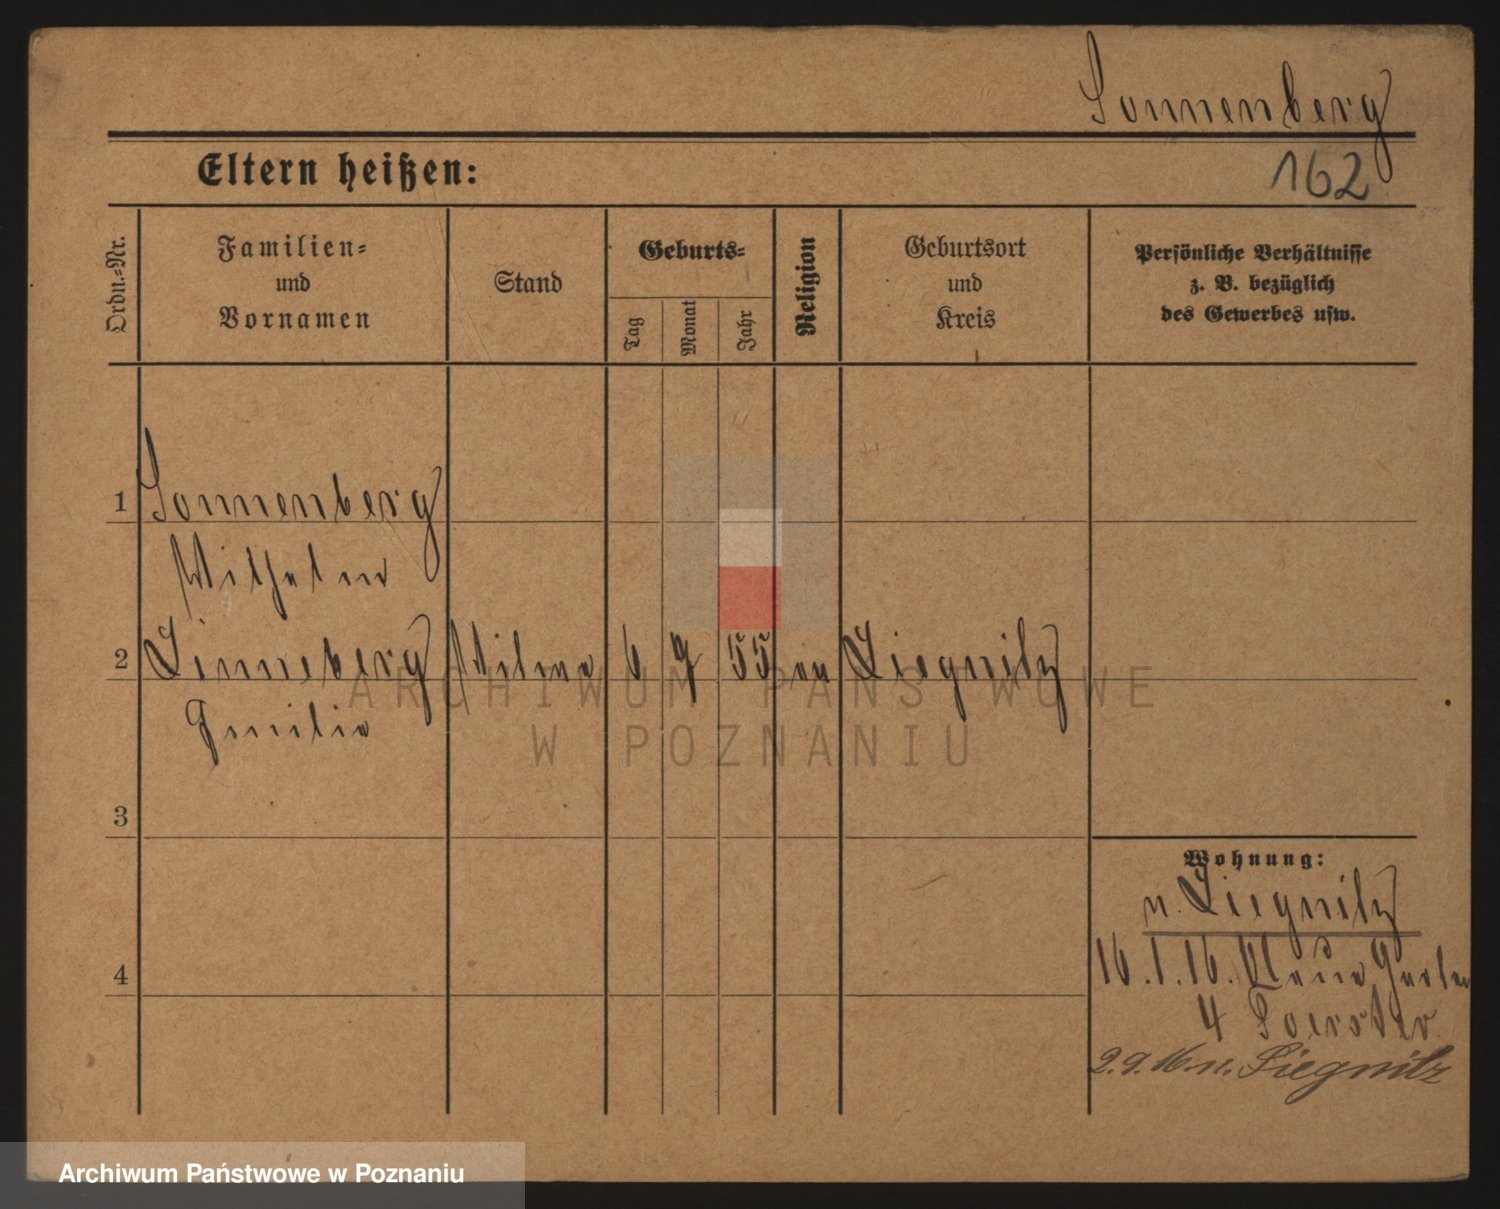 Sonnenberg
162
Eltern heißen:
Ordn.-Nr.
Familien-
und
Vornamen
Stand
Geburts-
Tag
Monat
Jahr
Religion
Geburtsort
und
Kreis
Persönliche Verhältnisse
z. B. bezüglich
des Gewerbes usw.
1 Sonnenberg
Wilhelm
2 Linneberg Witwe 6 9 55 ev Liegnitz
Emilie
3
4
Wohnung:
n. Liegnitz
16.1.16. Garten
4 Foerster
2.9.16. n. Liegnitz
ARCHIWUM PAŃSTWOWE
W POZNANIU
Archiwum Państwowe w Poznaniu